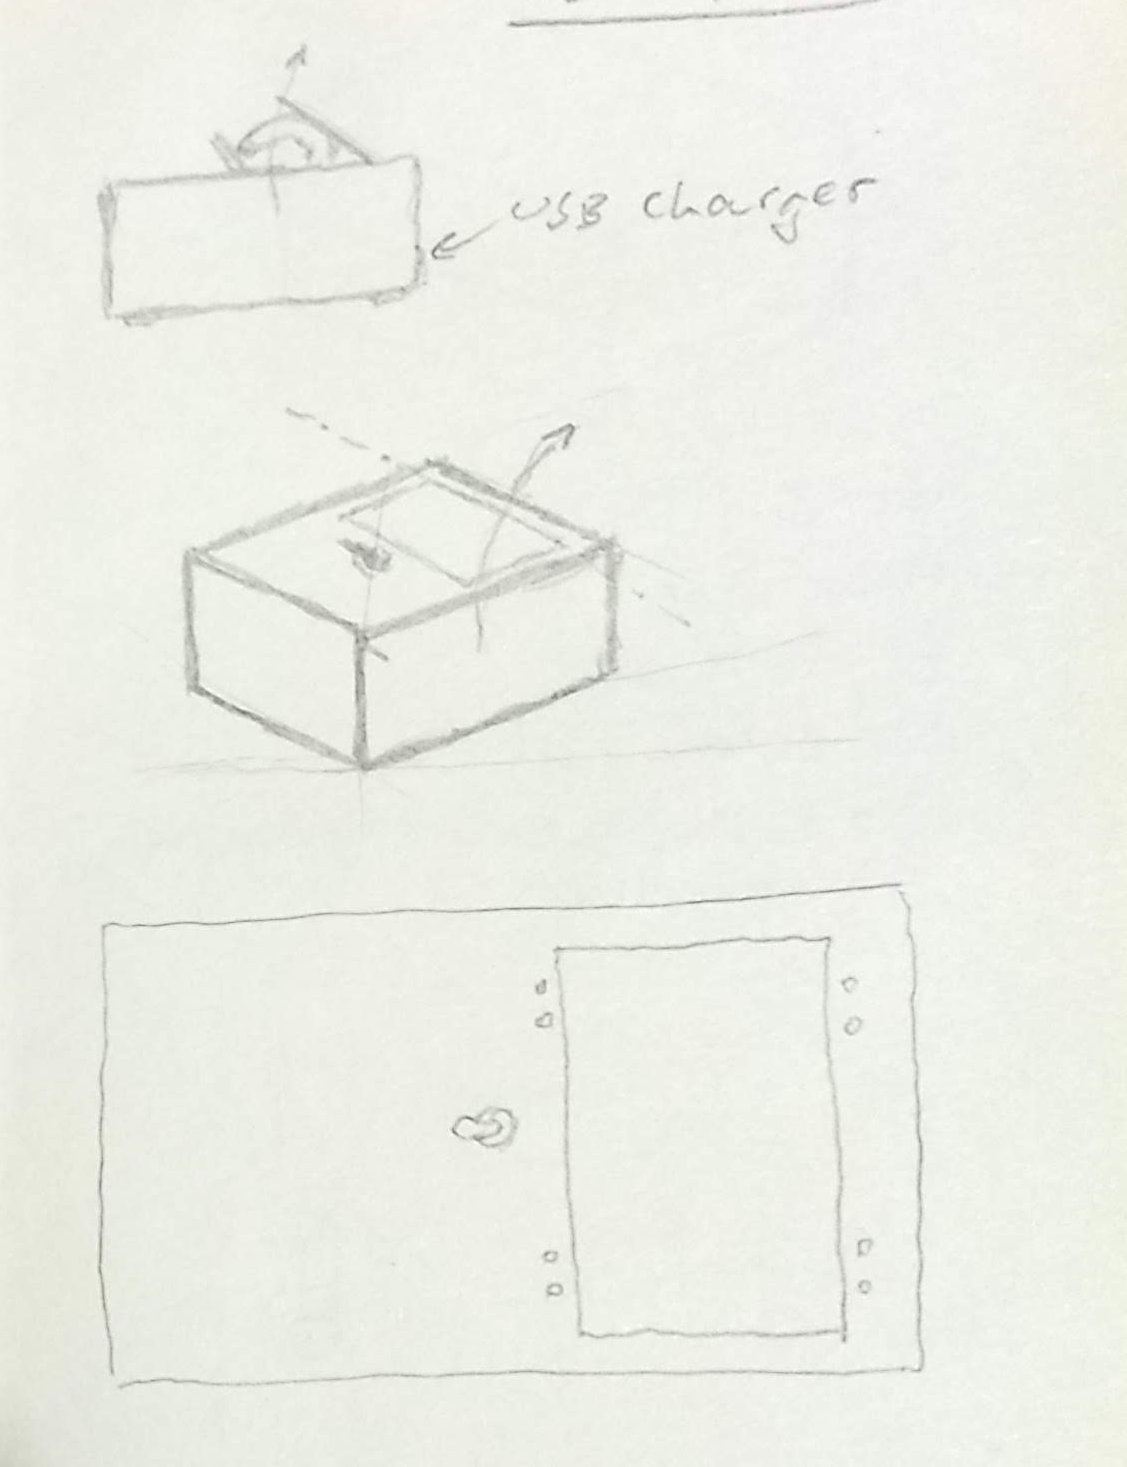 USB charger